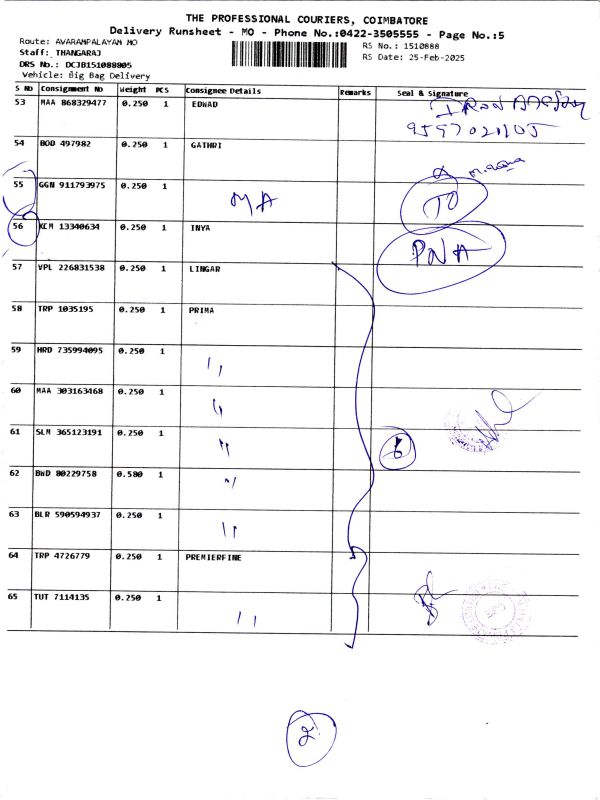 THE PROFESSIONAL COURIERS, COIMBATORE
Delivery Runsheet - MO - Phone No.:0422-3505555 - Page No.:5
Route: AVARAMPALAYAM MO
RS No.: 1510888
Staff: THANGARAJ
RS Date: 25-Feb-2025
DRS No.: DCJB151088805
Vehicle: Big Bag Delivery
S No Consignment No Weight PCS Consignee Details Remarks Seal & Signature
53 MAA 868329477 0.250 1 EDWAD
54 BOD 497982 0.250 1 GATHRI
55 GGN 911793975 0.250 1 MA TO
56 KCM 13340634 0.250 1 INYA PNA
57 VPL 226831538 0.250 1 LINGAR
58 TRP 1035195 0.250 1 PRIMA
59 HRD 735994095 0.250 1 〃
60 MAA 303163468 0.250 1 〃
61 SLM 365123191 0.250 1 〃 6
62 BWD 80229758 0.580 1 〃
63 BLR 590594937 0.250 1 〃
64 TRP 4726779 0.250 1 PREMIERFINE
65 TUT 7114135 0.250 1 〃
2